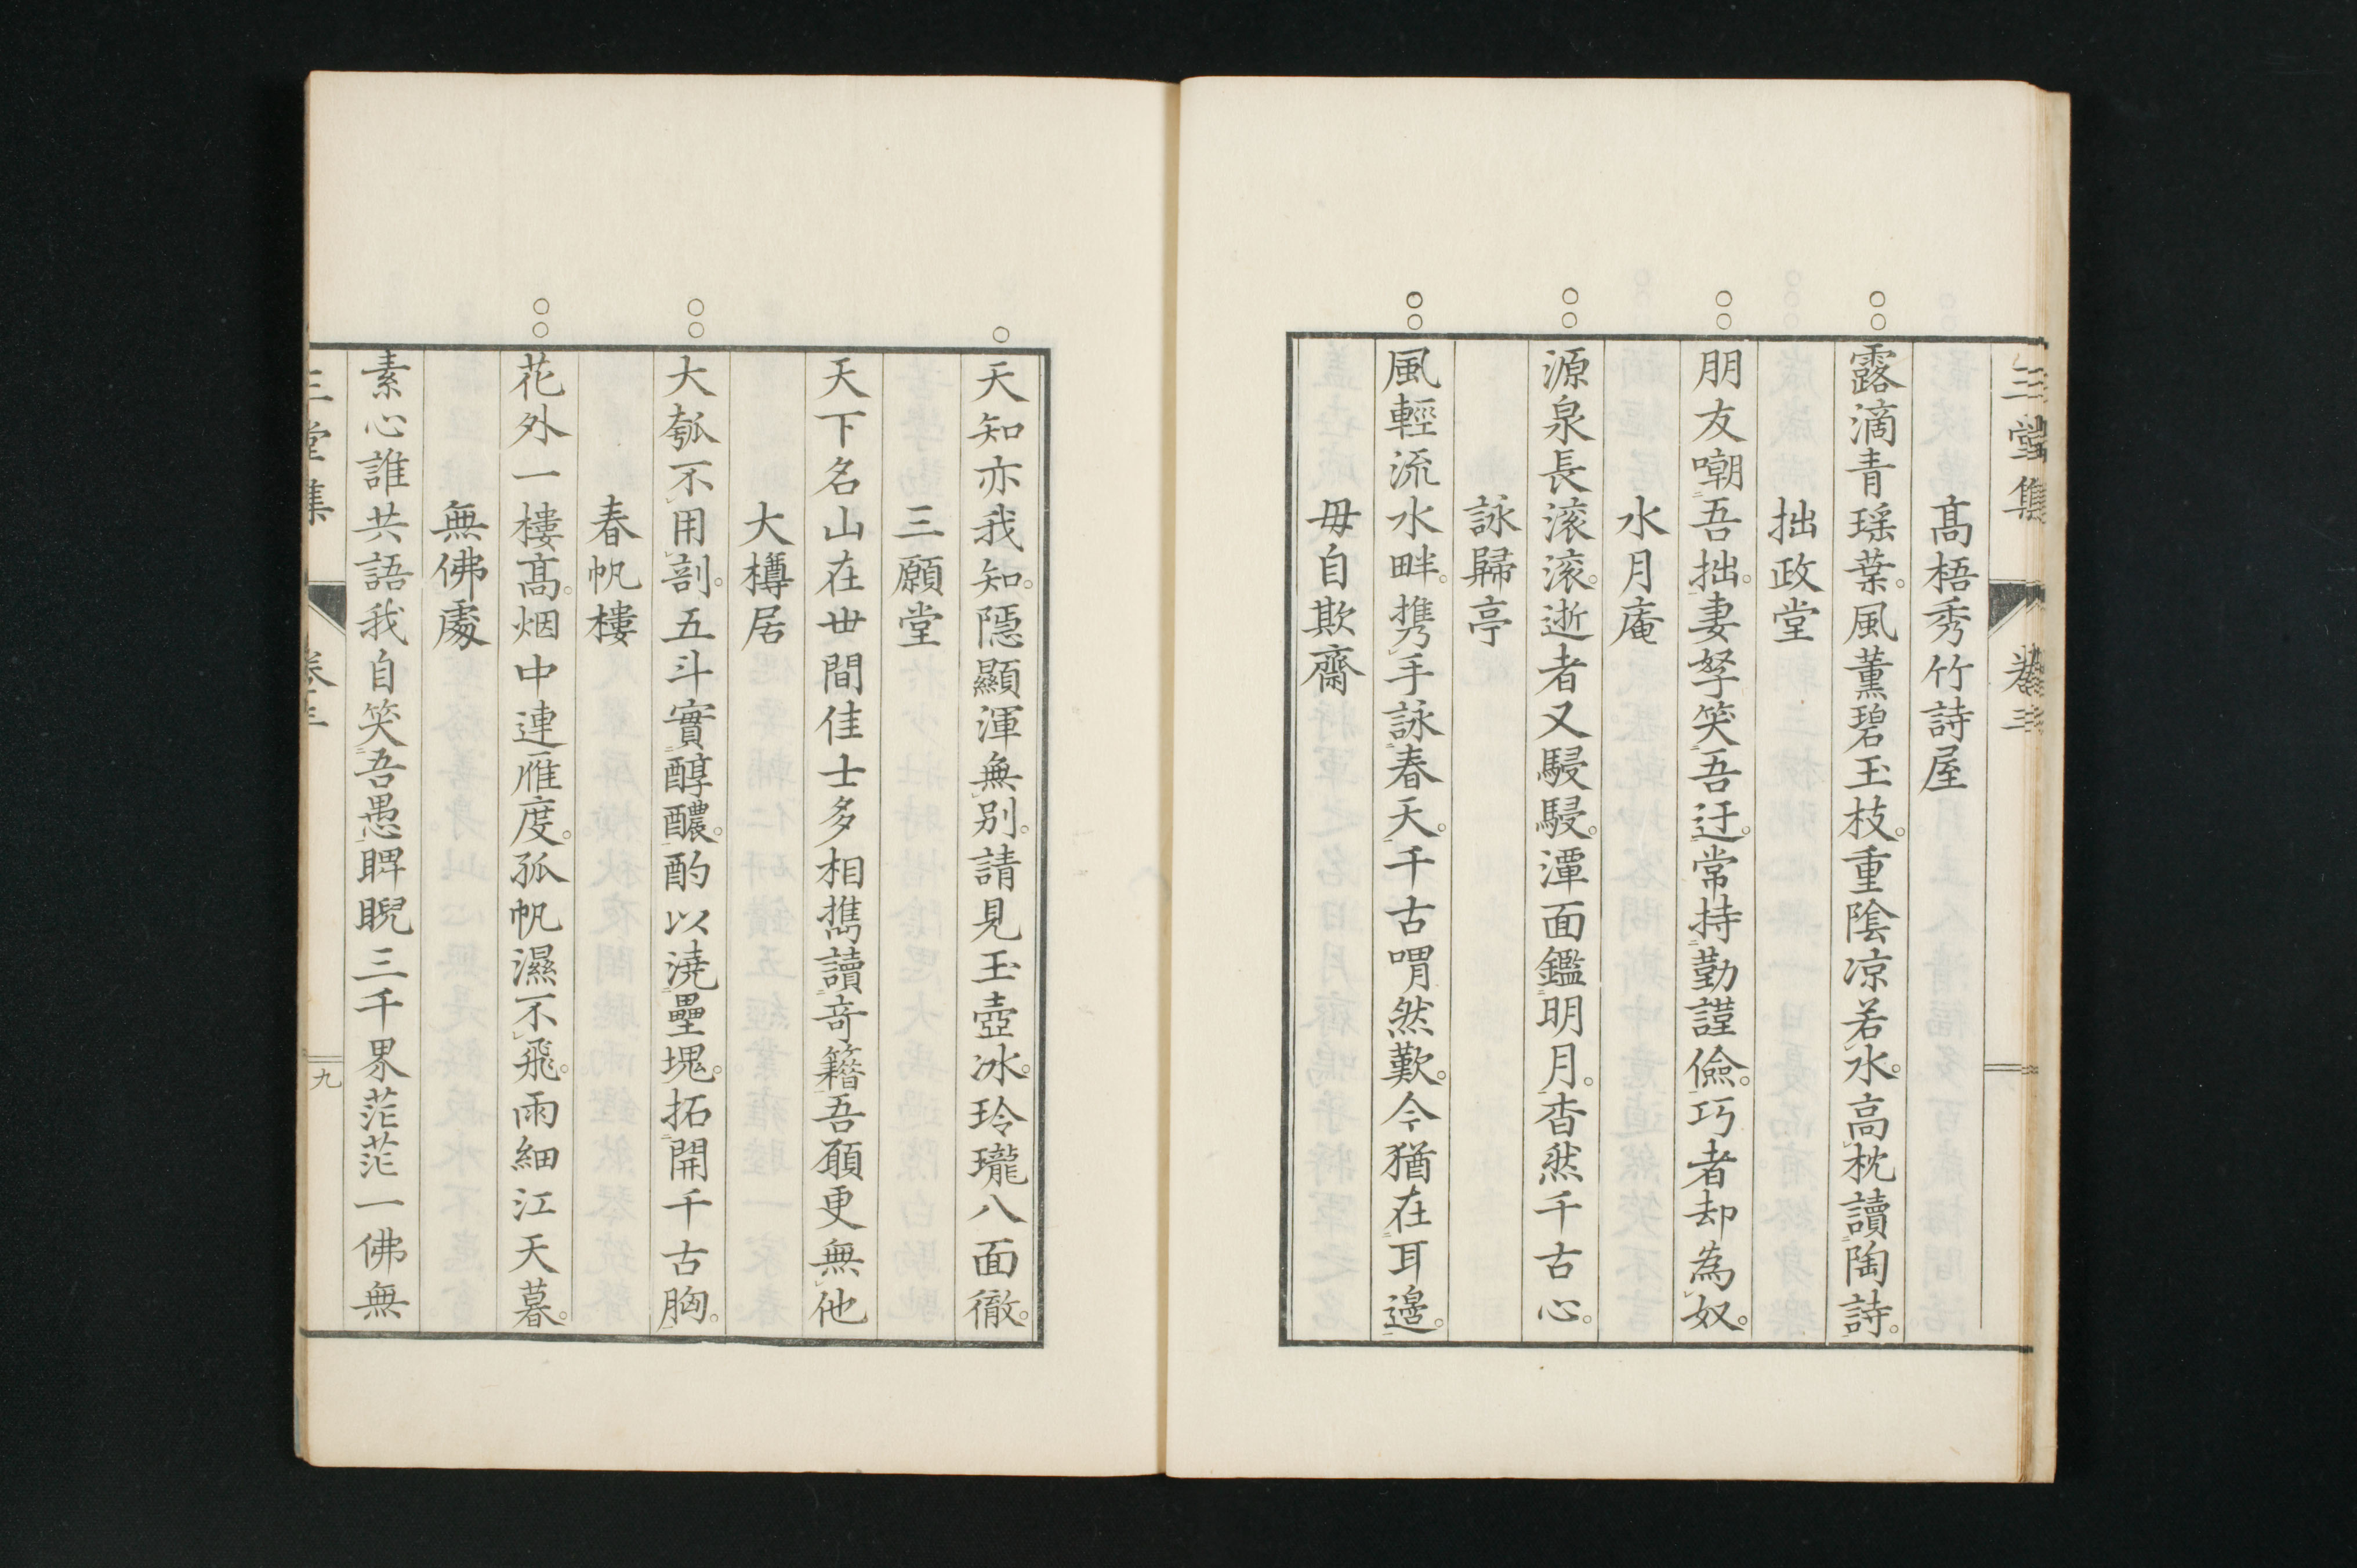 三堂集 卷三
高梧秀竹詩屋
露滴青瑶葉。風薫碧玉枝。重陰凉若水。高枕讀陶詩。
拙政堂
朋友嘲吾拙。妻孥笑吾迂。常持勤謹儉。巧者却為奴。
水月庵
源泉長滚滚。逝者又駸駸。潭面鑑明月。杳然千古心。
詠歸亭
風輕流水畔。携手詠春天。千古喟然歎。今猶在耳邊。
毋自欺齋
天知亦我知。隱顯渾無別。請見玉壺冰。玲瓏八面徹。
三願堂
天下名山在世間佳士多相擕讀奇籍吾願更無他
大樽居
大瓠不用剖。五斗實醇醲。酌以澆壘塊。拓開千古胸。
春帆樓
花外一樓高。烟中連雁度。孤帆濕不飛。雨細江天暮。
無佛處
素心誰共語我自笑吾愚睥睨三千界茫茫一佛無
三堂集 卷三 九